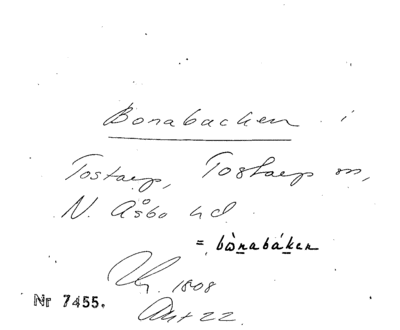 Bonabacken i
Tostarp, Tostarp sn,
N. Åsbo hd
= bònabáken
1808
Nr 7455.
Akt 22